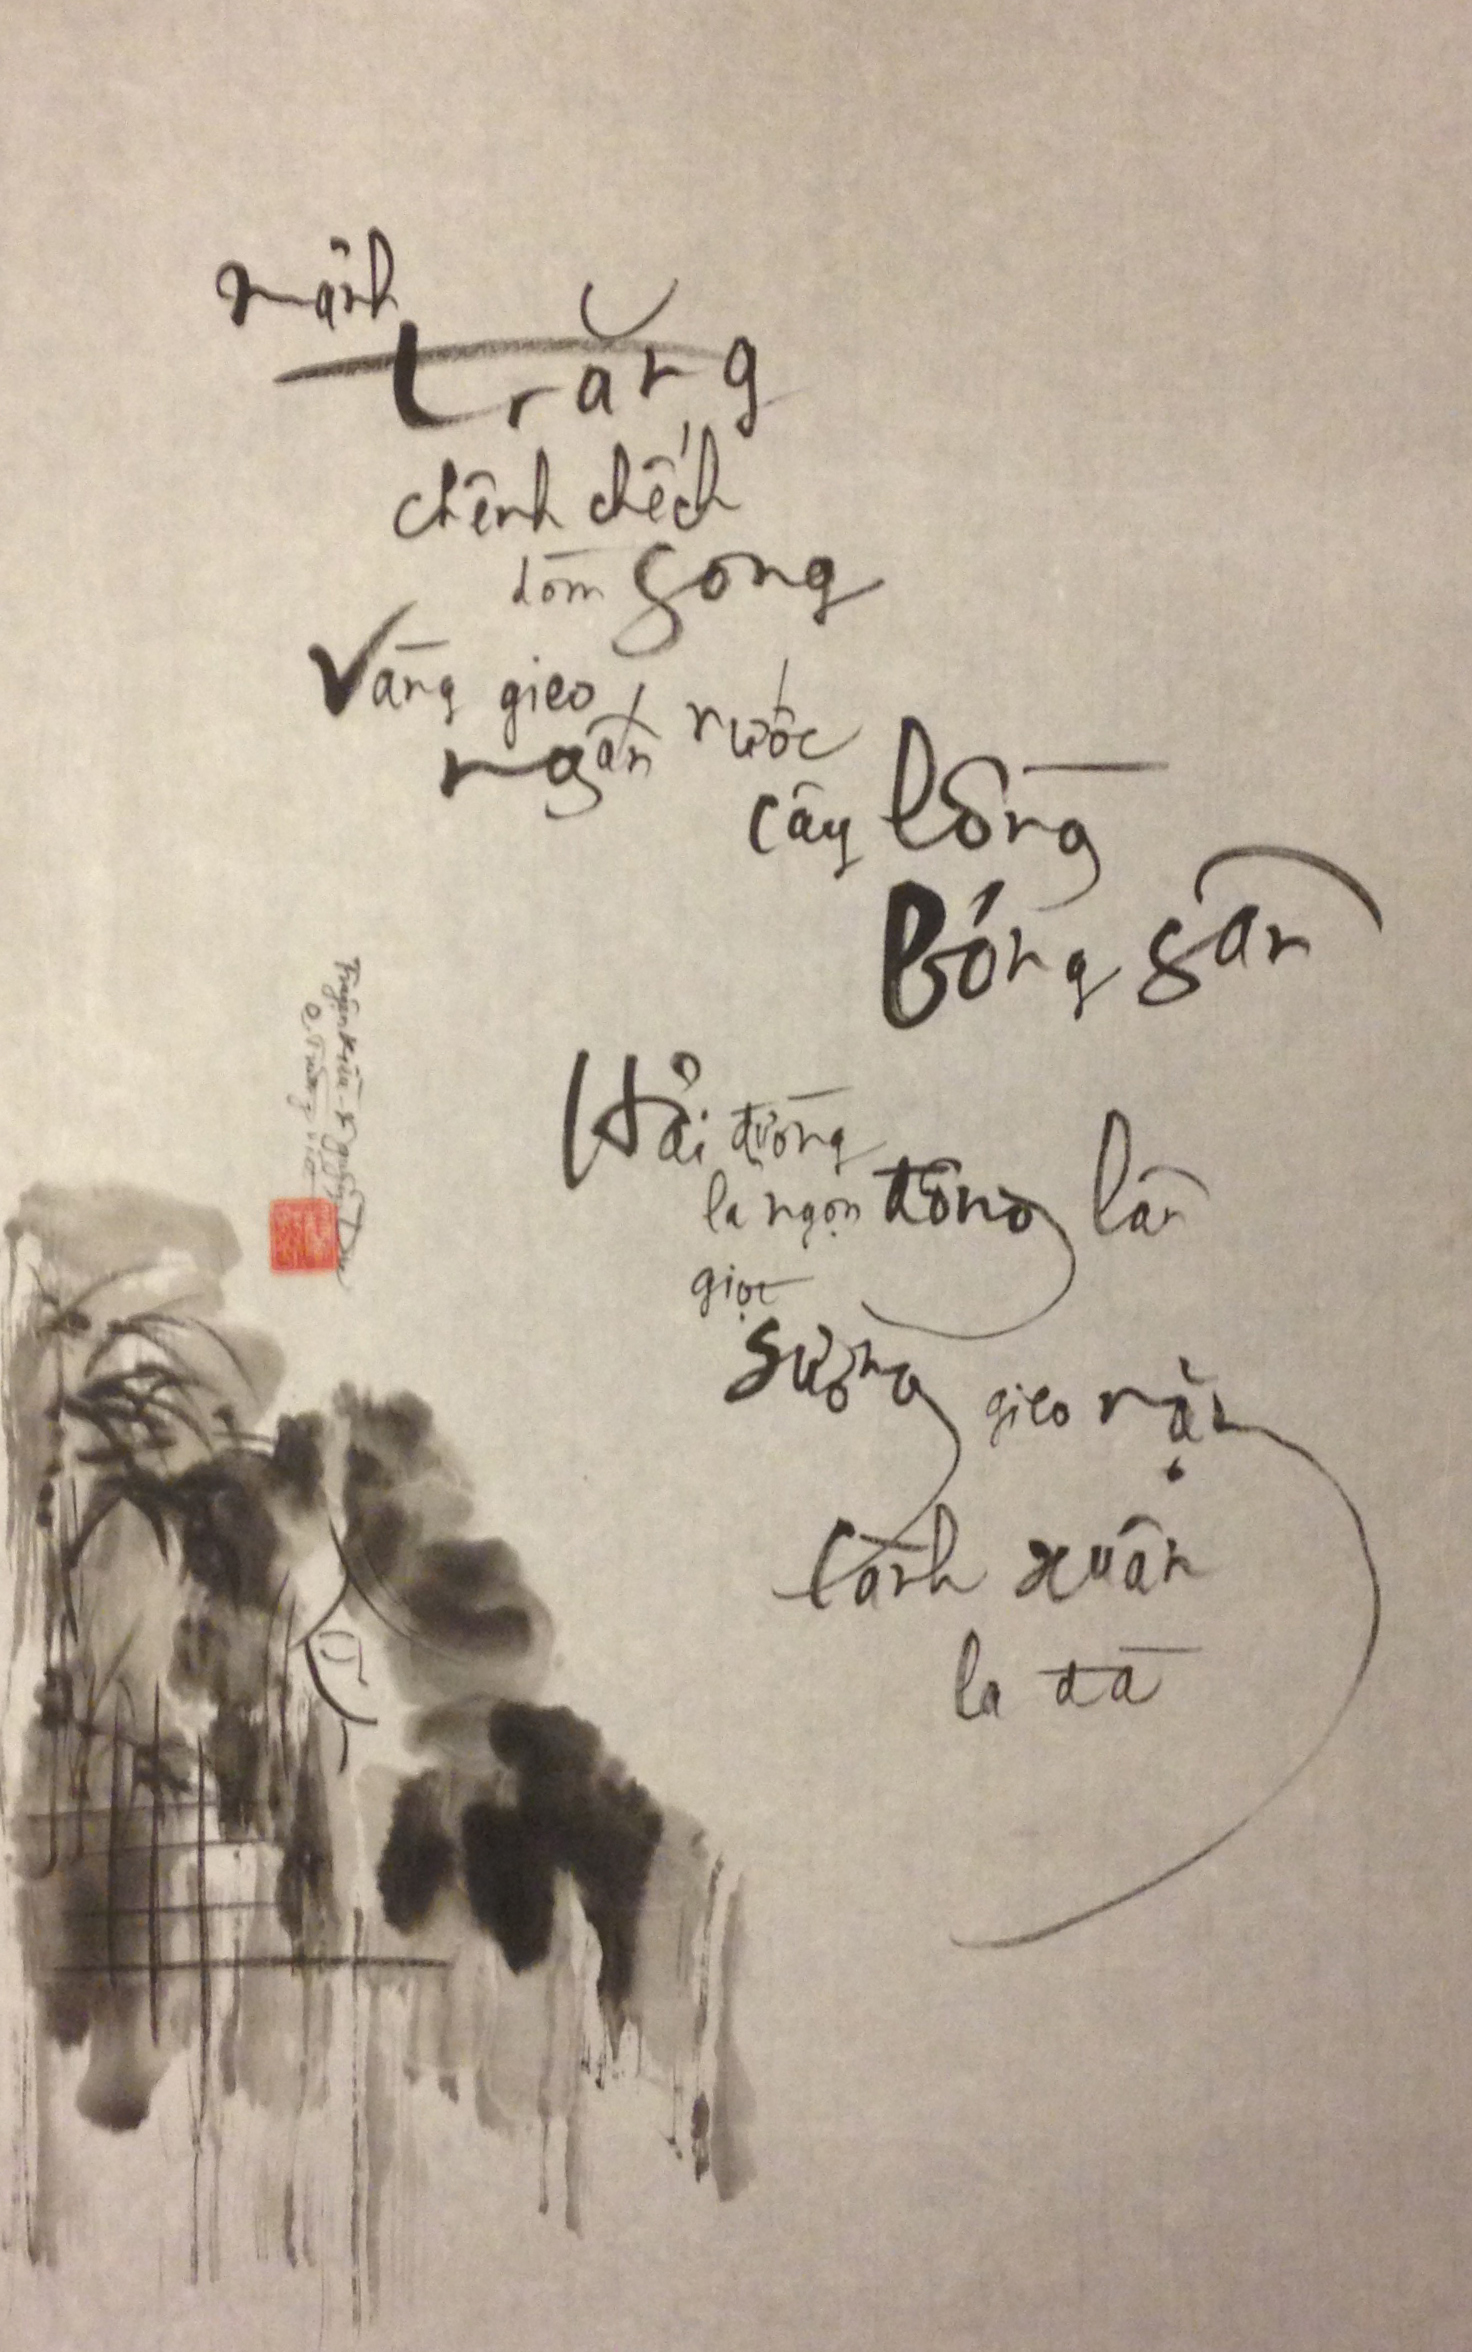 mảnh
trăng
chênh chếch
dòm song
Vàng gieo
ngấn nước
cây lồng
Bóng sân
Hải đường
lả ngọn đông lân
giọt
sương gieo nặng
cành xuân
la đà
Truyện Kiều - Nguyễn Du